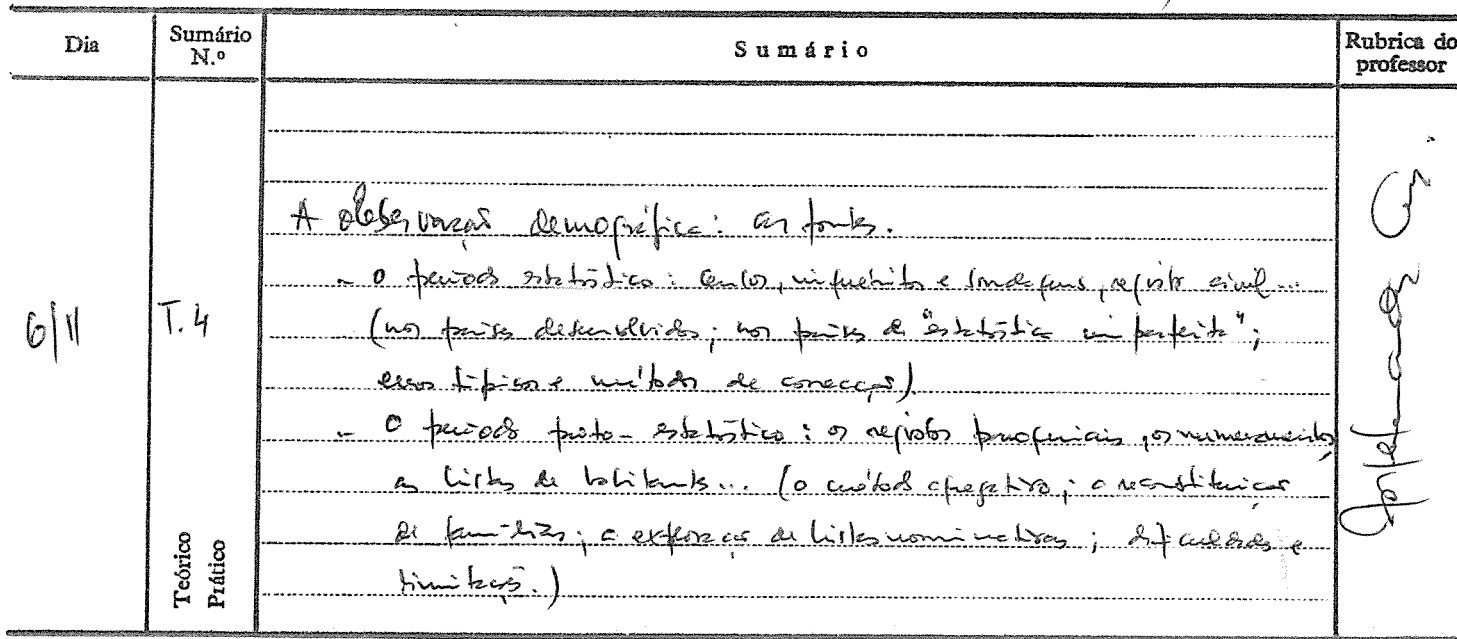 Dia
Sumário N.º
Sumário
Rubrica do professor
6/11
T. 4
Teórico
Prático
A observação demográfica: as fontes.
- o período estatístico: censos, inquéritos e sondagens, registo civil...
(nos países desenvolvidos; nos países de "estatística imperfeita";
erros típicos e métodos de correcção).
- O período proto-estatístico: os registos paroquiais, os numeramentos,
as listas de habitantes... (o método agregativo; a reconstituição
de famílias; a exploração de listas nominativas; dificuldades e
limitações.)